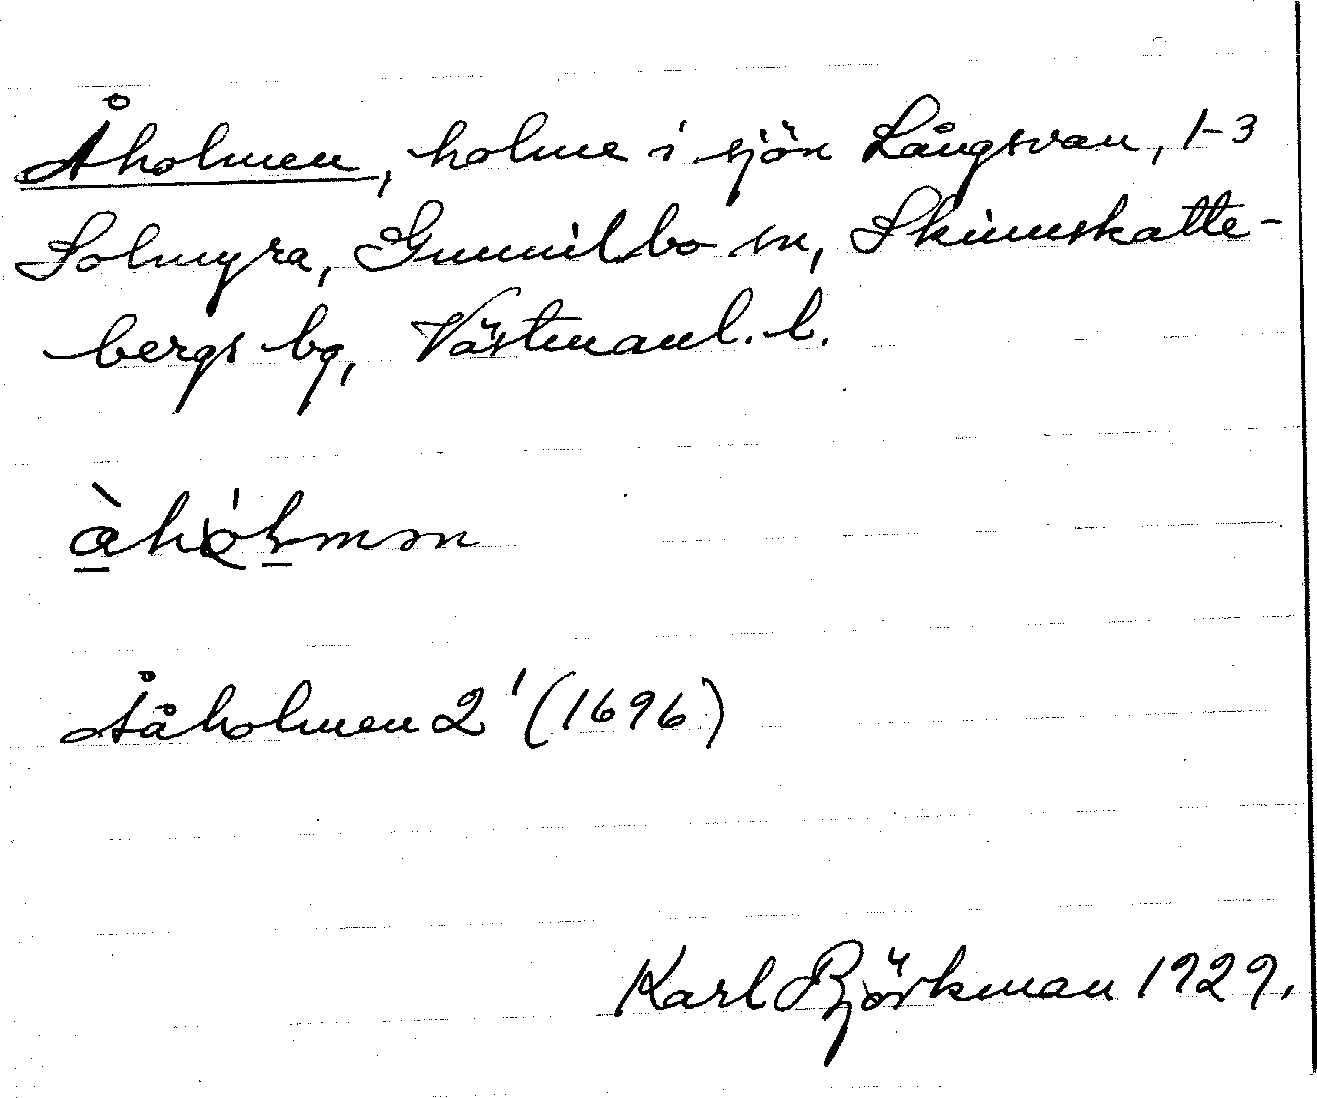 Åholmen, holme i sjön Långsvan, 1-3
Solmyra, Gunnilbo sn, Skinnskatte-
bergs bg, Västmanl. l.
Ååholmen 2' (1696)
Karl Björkman 1929.